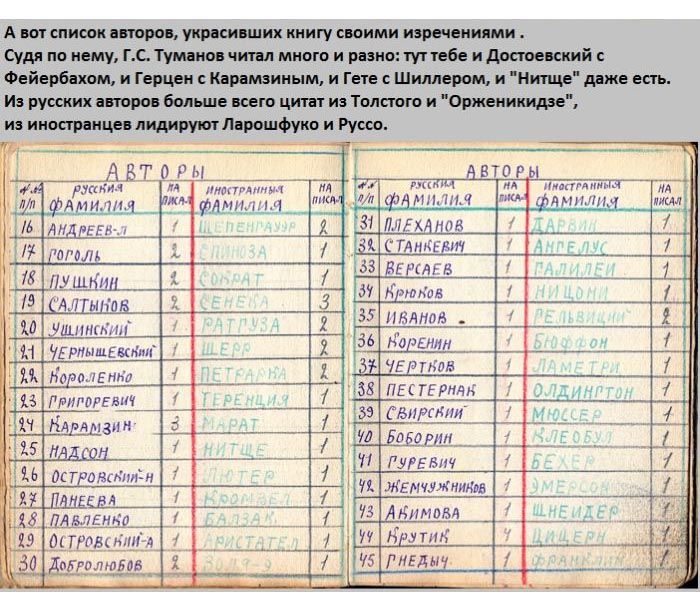 А вот список авторов, украсивших книгу своими изречениями .
Судя по нему, Г.С. Туманов читал много и разно: тут тебе и Достоевский с
Фейербахом, и Герцен с Карамзиным, и Гете с Шиллером, и "Нитще" даже есть.
Из русских авторов больше всего цитат из Толстого и "Орженикидзе",
из иностранцев лидируют Ларошфуко и Руссо.
АВТОРЫ
№№ п/п РУССКИЙ ФАМИЛИЯ НА ПИСАЛ ИНОСТРАННЫЙ ФАМИЛИЯ НА ПИСАЛ
16 АНДРЕЕВ-Л 1 ШЕПЕНГАУЭР 2
17 ГОГОЛЬ 2 СПИНОЗА 1
18 ПУШКИН 2 СОКРАТ 1
19 САЛТЫКОВ 2 СЕНЕКА 3
20 УШИНСКИЙ 1 РАТГУЗА 2
21 ЧЕРНЫШЕВСКИЙ 1 ШЕРР 2
22 КОРОЛЕНКО 1 ПЕТРАРКА 2
23 ГРИГОРЕВИЧ 1 ТЕРЕНЦИЯ 1
24 КАРАМЗИН 3 МАРАТ 1
25 НАДСОН 1 НИТЩЕ 1
26 ОСТРОВСКИЙ-Н 1 ЛЮТЕР 1
27 ПАНЕЕВА 1 КРОМВЕЛ 1
28 ПАВЛЕНКО 1 БАЛЗАК 1
29 ОСТРОВСКИЙ-А 1 АРИСТАТЕЛ 1
30 ДОБРОЛЮБОВ 2 ЗОЛЯ-Э 1
АВТОРЫ
№№ п/п РУССКИЙ ФАМИЛИЯ НА ПИСАЛ ИНОСТРАННЫЙ ФАМИЛИЯ НА ПИСАЛ
31 ПЛЕХАНОВ 1 ДАРВИН 1
32 СТАНКЕВИЧ 1 АНГЕЛУС 1
33 ВЕРСАЕВ 1 ГАЛИЛЕЙ 1
34 КРЮКОВ 1 НИЦОНИ 1
35 ИВАНОВ 1 ГЕЛЬВИЦИЙ 2
36 КОРЕНИН 1 БЮФФОН 1
37 ЧЕРТКОВ 1 ЛАМЕТРИ 1
38 ПЕСТЕРНАК 1 ОЛДИНГТОН 1
39 СВИРСКИЙ 1 МЮССЕР 1
40 БОБОРИН 1 КЛЕОБУЛ 1
41 ГУРЕВИЧ 1 БЕХЕР 1
42 ЖЕМЧУЖНИКОВ 1 ЭМЕРСОН 1
43 АКИМОВА 1 ШНЕЙДЕР 1
44 КРУТИК 4 ЦИЦЕРН 1
45 ГНЕДЫЧ 1 ФРАНКЛИН 1